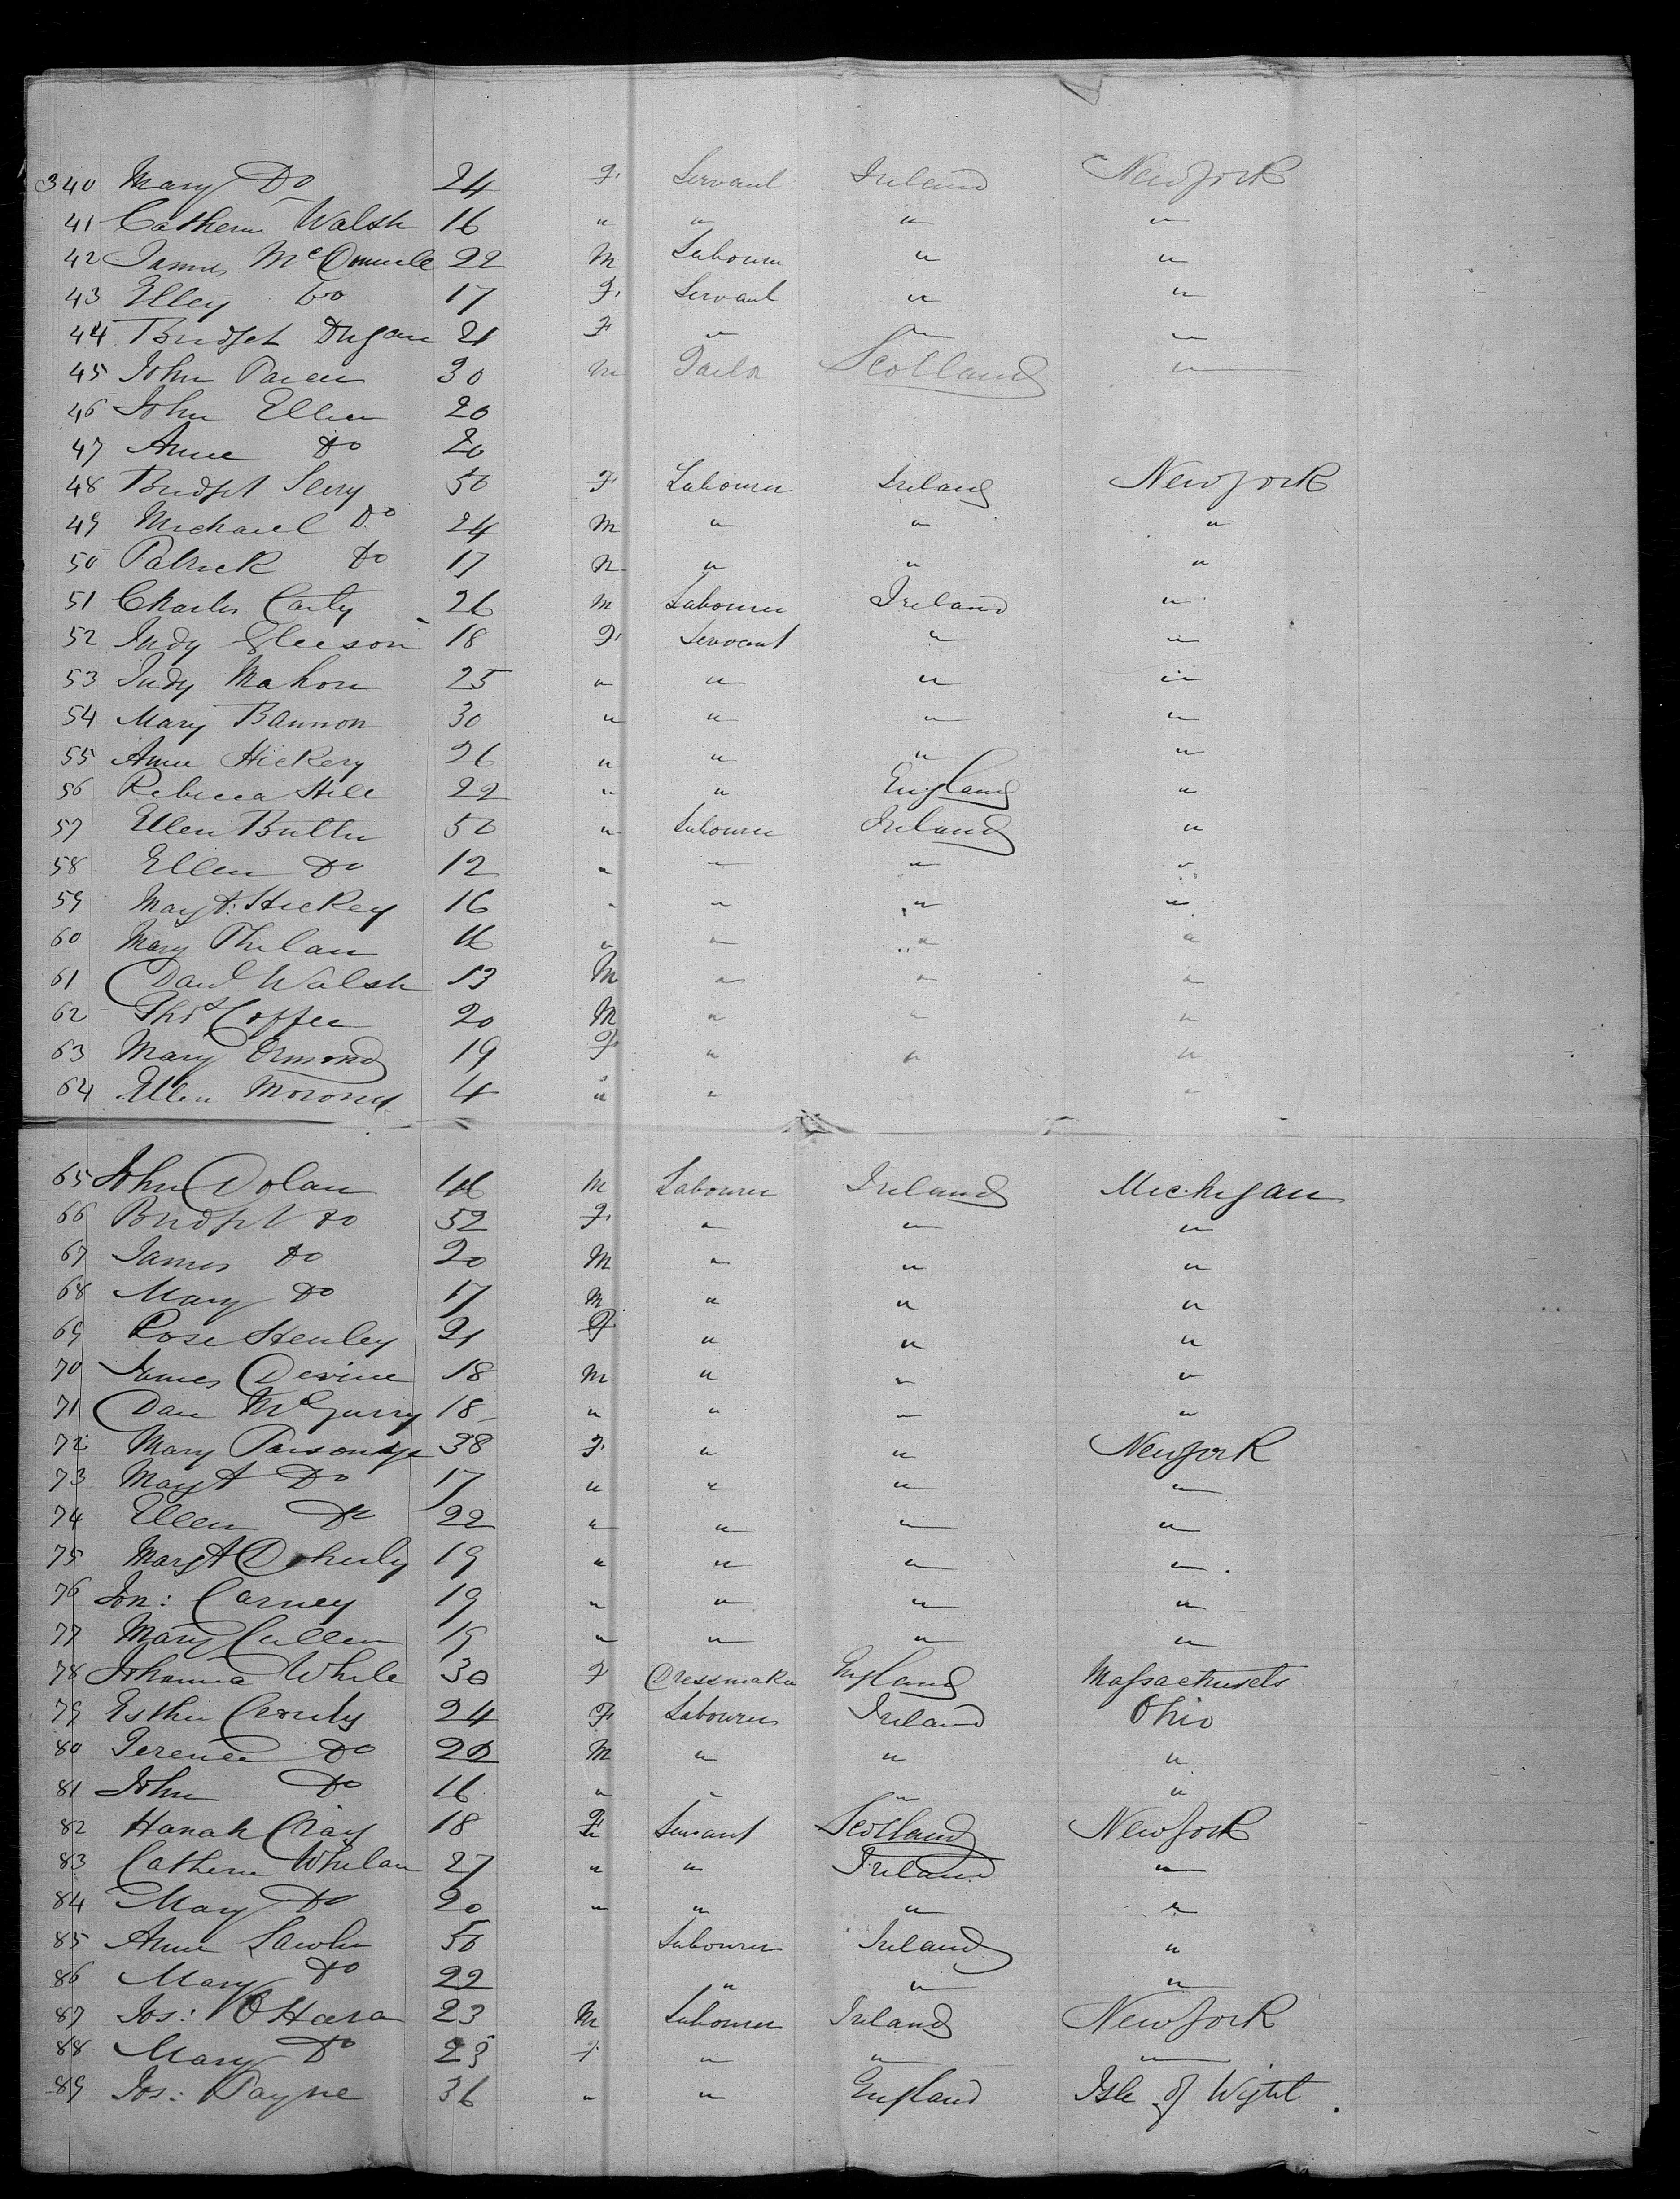 340 Mary Do 24 F. Servant Ireland New York
41 Cathern Walsh 16 " " " "
42 James McDonnell 22 M Labourer " "
43 Elley Do 17 F. Servant " "
44 Bridget Dugan 21 F " " "
45 John 30 m Tailor Scotland "
46 John Ellen 20
47 Anne Do 20
48 Bridget Seery 50 F Labourer Ireland New York
49 Michael Do 24 M " " "
50 Patrick Do 17 M " " "
51 Charles Carty 26 M Labourer Ireland "
52 Judy Gleeson 18 F Servant " "
53 Judy Mahon 25 " " " "
54 Mary Bannon 30 " " " "
55 Anne Hickery 26 " " " "
56 Rebecca Hill 22 " " England "
57 Ellen Butler 50 " Labourer Ireland "
58 Ellen Do 12 " " " "
59 Mayt. Hickey 16 " " " "
60 Mary Phelan 16 " " " "
61 Danl Walsh 13 M " " "
62 Thos Coffee 20 M " " "
63 Mary Ormond 19 F " " "
64 Ellen Moroney 4 " " "
65 John Dolan 46 M Labourer Ireland Michigan
66 Bridget Do 52 F. " " "
67 James Do 20 M " " "
68 Mary Do 17 M " " "
69 Rose Henley 21 F " " "
70 James Devine 18 M " " "
71 Dan McGurry 18 " " " "
72 Mary Parsonage 38 F. " " New York
73 Mayt Do 17 " " " "
74 Ellen Do 22 " " " "
75 Margt Doherly 19 " " " "
76 Jon: Carney 19 " " " "
77 Mary Cullen 19 " " " "
78 Johanna While 30 F Dressmaker England Massachusets
79 Esther 24 F Labourer Ireland Ohio
80 Terence Do M " " "
81 John Do 16 " " " "
82 Hanah 18 F Servant Scotland New York
83 Cathern Whelan 27 " " Ireland "
84 Mary Do 20 " " " "
85 Anne Lawlin 50 Labourer Ireland "
86 Mary Do 22 " " "
87 Jos: O'Hara 23 M Labourer Ireland New York
88 Mary Do 23 F " " "
89 Jos: Payne 36 " " England Isle of Wight.